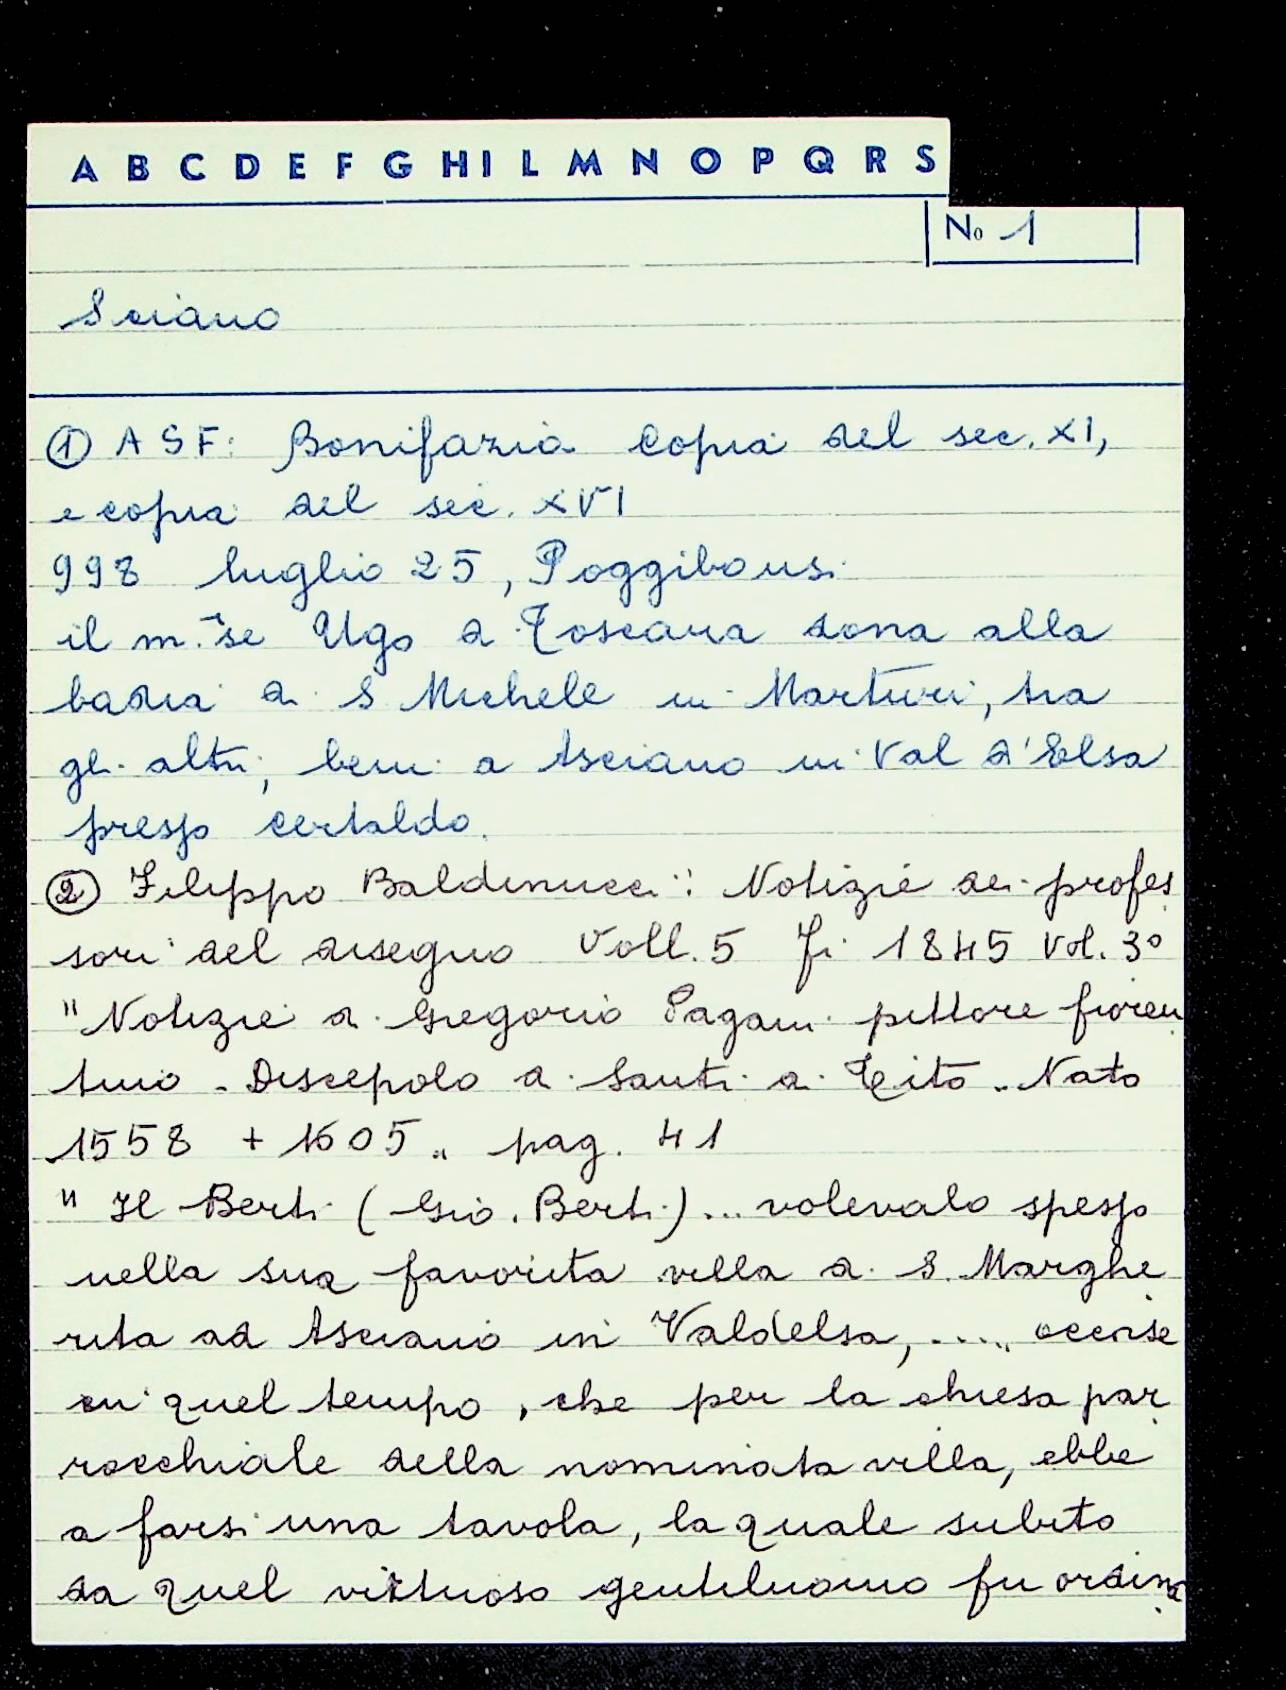 A B C D E F G H I L M N O P Q R S
No 1
Sciano
① A S F: Bonifazio copia del sec. XI,
e copia del sec. XVI
998 luglio 25, Poggibonsi
il m.se Ugo di Toscana dona alla
badia di S Michele in Marturi, tra
gli altri, beni a Asciano in Val d'Elsa
presso Certaldo.
② Filippo Baldinucci: Notizie dei profes
sori del disegno Voll. 5 Fi 1845 Vol. 3º
"Notizie di Gregorio Pagani pittore fioren
tino - Discepolo di Santi di Tito - Nato
1558 + 1605" pag. 41
" Il Berti (Gio. Berti)... volevalo spesso
nella sua favorita villa di S. Marghe
rita ad Asciano in Valdelsa, .... occorse
in quel tempo, che per la chiesa par
rocchiale della nominata villa, ebbe
a farsi una tavola, la quale subito
da quel virtuoso gentiluomo fu ordina